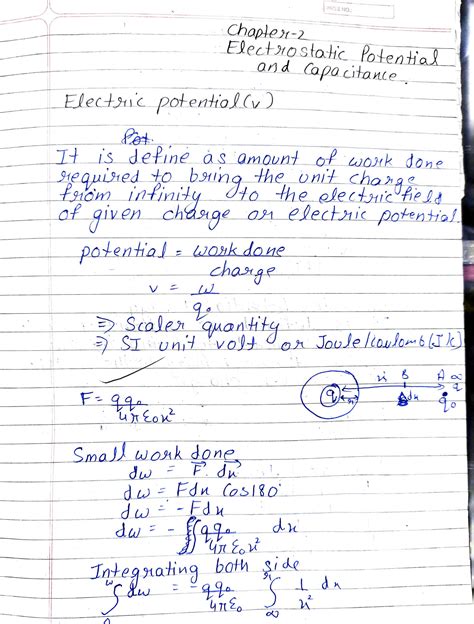 Chapter-2
Electrostatic Potential
and Capacitance.
Electric potential(v)
Pot
It is define as amount of work done
required to bring the unit charge
from infinity to the electric field
of given charge or electric potential.
potential = work done
charge
v = w
q₀
⇒ Scaler quantity
⇒ SI unit volt or Joule/coulomb (J/c)
F = qq₀
4πε₀x²
x B A ∞
q x dx q₀
Small work done
dw = F⃗. dx⃗
dw = Fdx Cos180
dw = -Fdx
dw = - qq₀ dx
4πε₀x²
Integrating both side
∫dw = -qq₀ ∫ 1 dx
4πε₀ ∞ x²